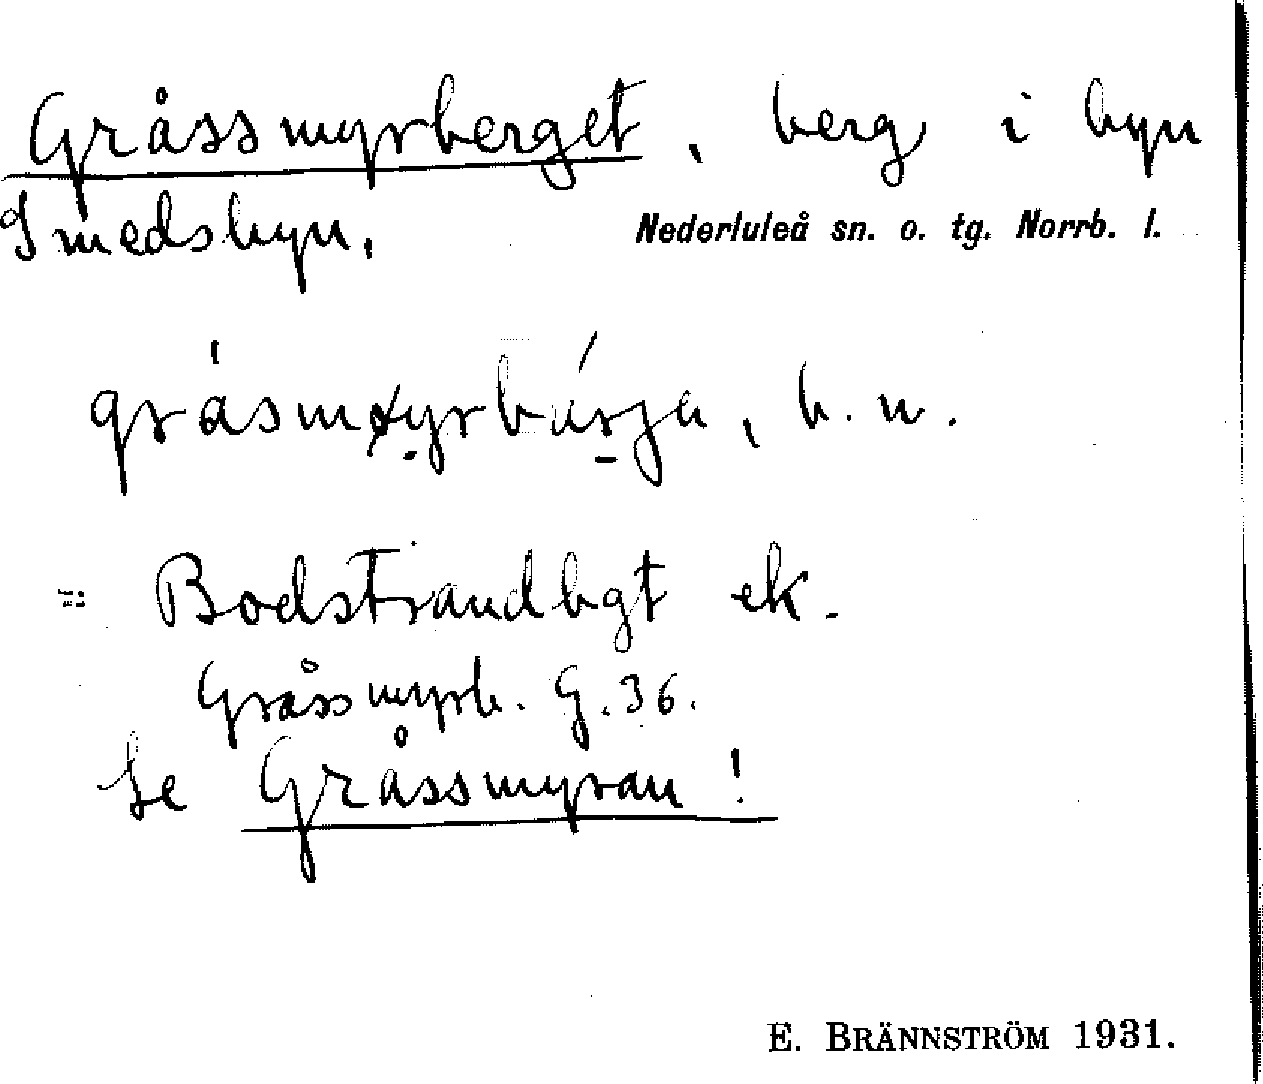 Gråssmyrberget, berg i byn
Smedsbyn.
Nederluleå sn. o. tg. Norrb. l.
b. n.
= Bodstrandbgt ek.
Gråssmyrb. G. 36.
Se Gråssmyran!
E. BRÄNNSTRÖM 1931.